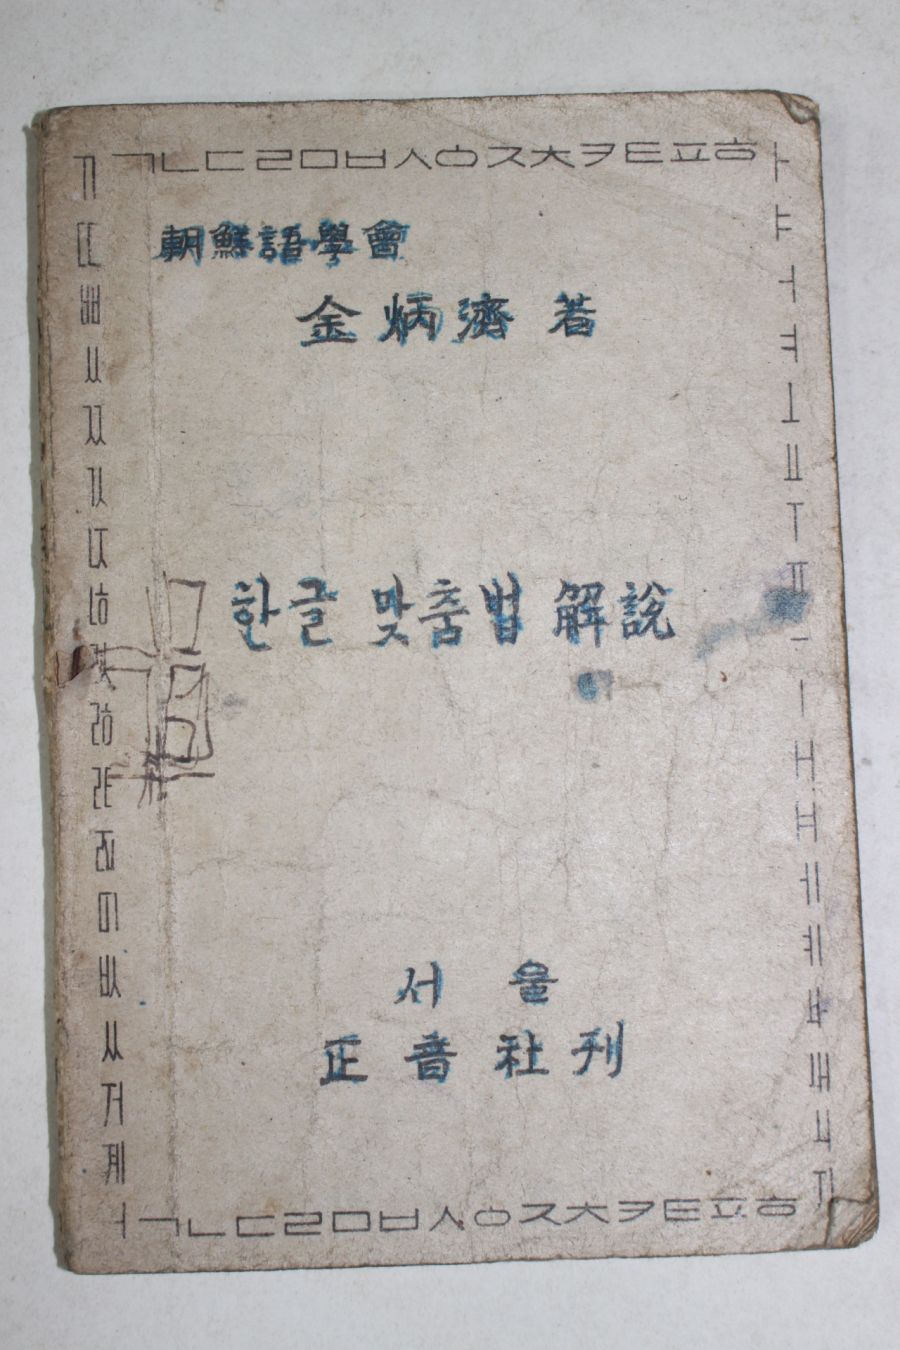 ㄱㄴㄷㄹㅁㅂㅅㅇㅈㅊㅋㅌㅍㅎ
朝鮮語學會
金炳濟 著
한글 맞춤법 解說
서울
正音社刊
ㄱㄴㄷㄹㅁㅂㅅㅇㅈㅊㅋㅌㅍㅎ
ㅏㅑㅓㅕㅗㅛㅜㅠㅡㅣㅐㅒㅔㅖㅘㅙ